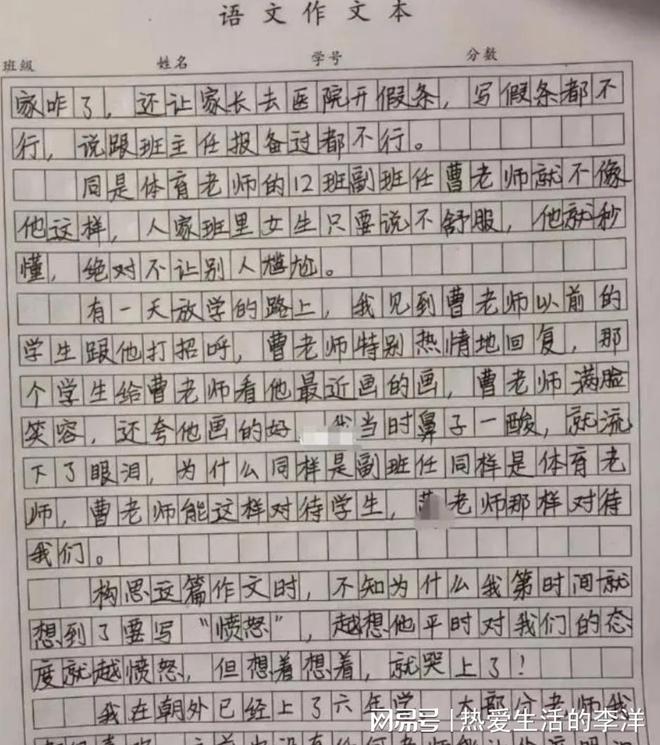 语文作文本
班级 姓名 学号 分数
家咋了，还让家长去医院开假条，写假条都不
行，说跟班主任报备过都不行。
同是体育老师的12班副班任曹老师就不像
他这样，人家班里女生只要说不舒服，他就秒
懂，绝对不让别人尴尬。
有一天放学的路上，我见到曹老师以前的
学生跟他打招呼，曹老师特别热情地回复，那
个学生给曹老师看他最近画的画，曹老师满脸
笑容，还夸他画的好 我当时鼻子一酸，就流
下了眼泪，为什么同样是副班任同样是体育老
师，曹老师能这样对待学生， 老师那样对待
我们。
构思这篇作文时，不知为什么我第时间就
想到了要写“愤怒”，越想他平时对我们的态
度就越愤怒，但想着想着，就哭上了！
我在朝外已经上了六年学 大部分老师我
网易号|热爱生活的李洋